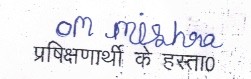 om mishra
प्रबिक्षणार्थी के हस्ता०